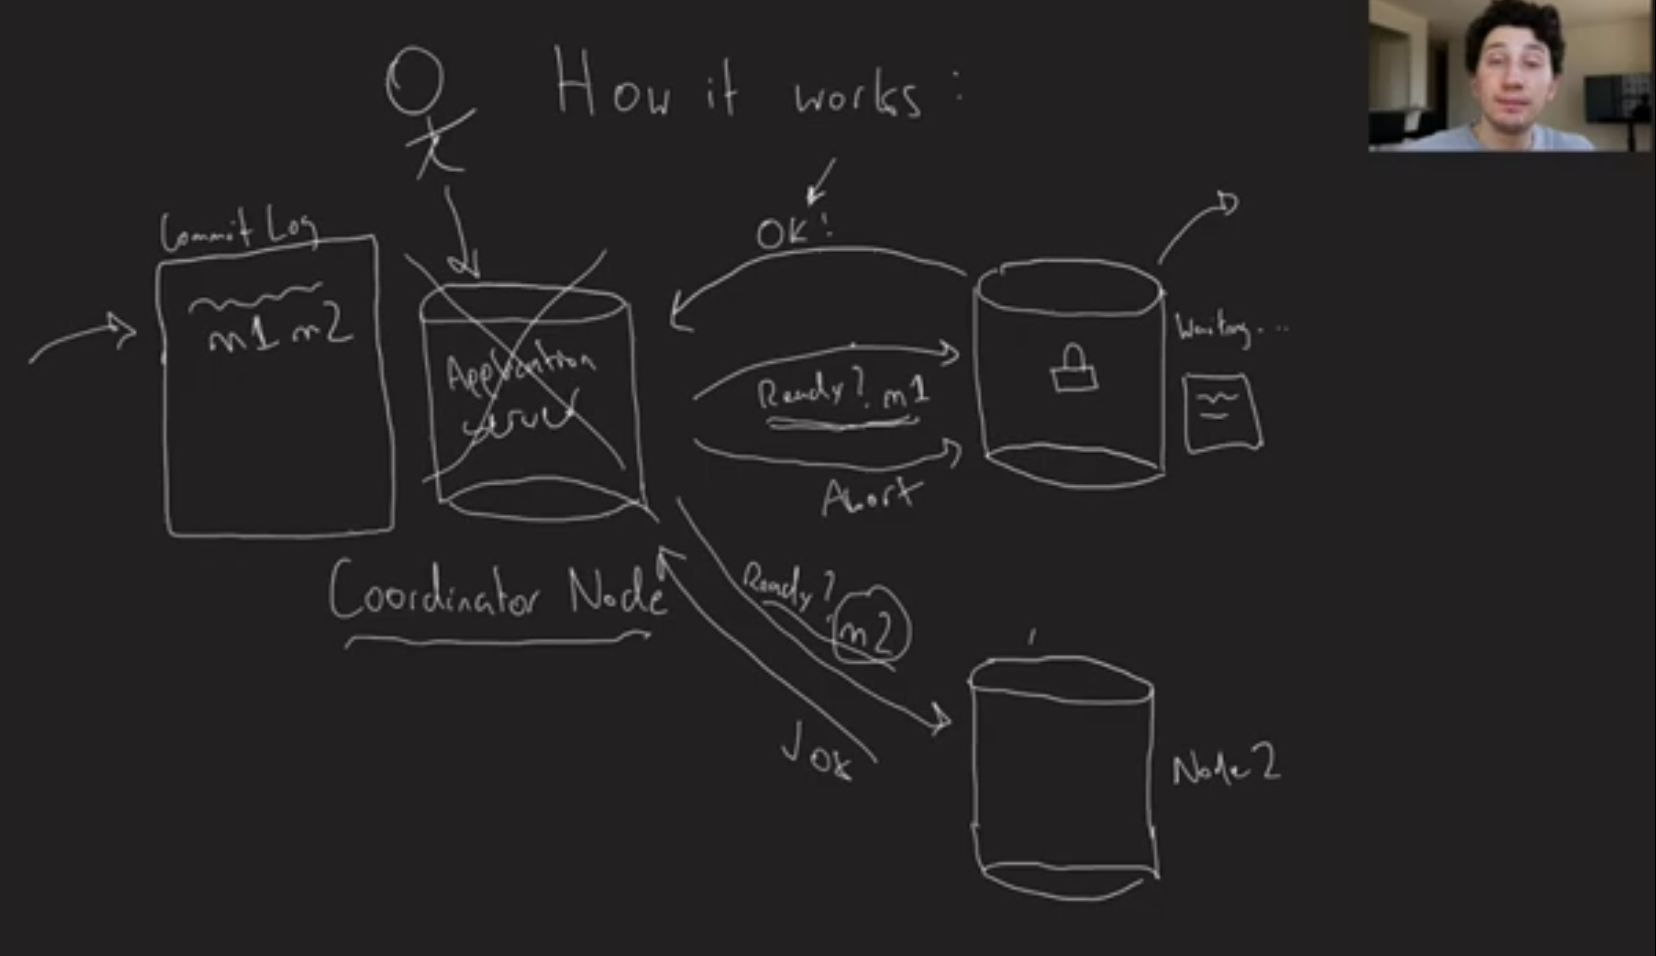 How it works:
Commit Log
m1 m2
Application
server
Coordinator Node
OK!
Ready? m1
Abort
Waiting...
Ready?
m2
OK
Node 2